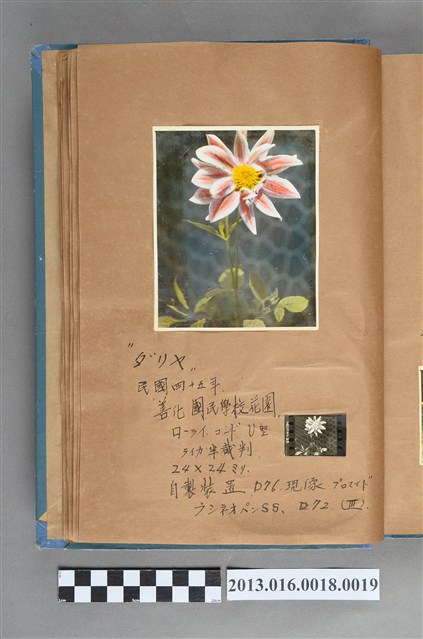 "ダリヤ"
民國四十五年.
善化國民學校花園.
ローライ.コード V型
ライカ半裁判
24×24ミリ.
自製裝置 D76.現像 ブロマイド
フジネオパンSS、D72.(Ⅲ).
2013.016.0018.0019